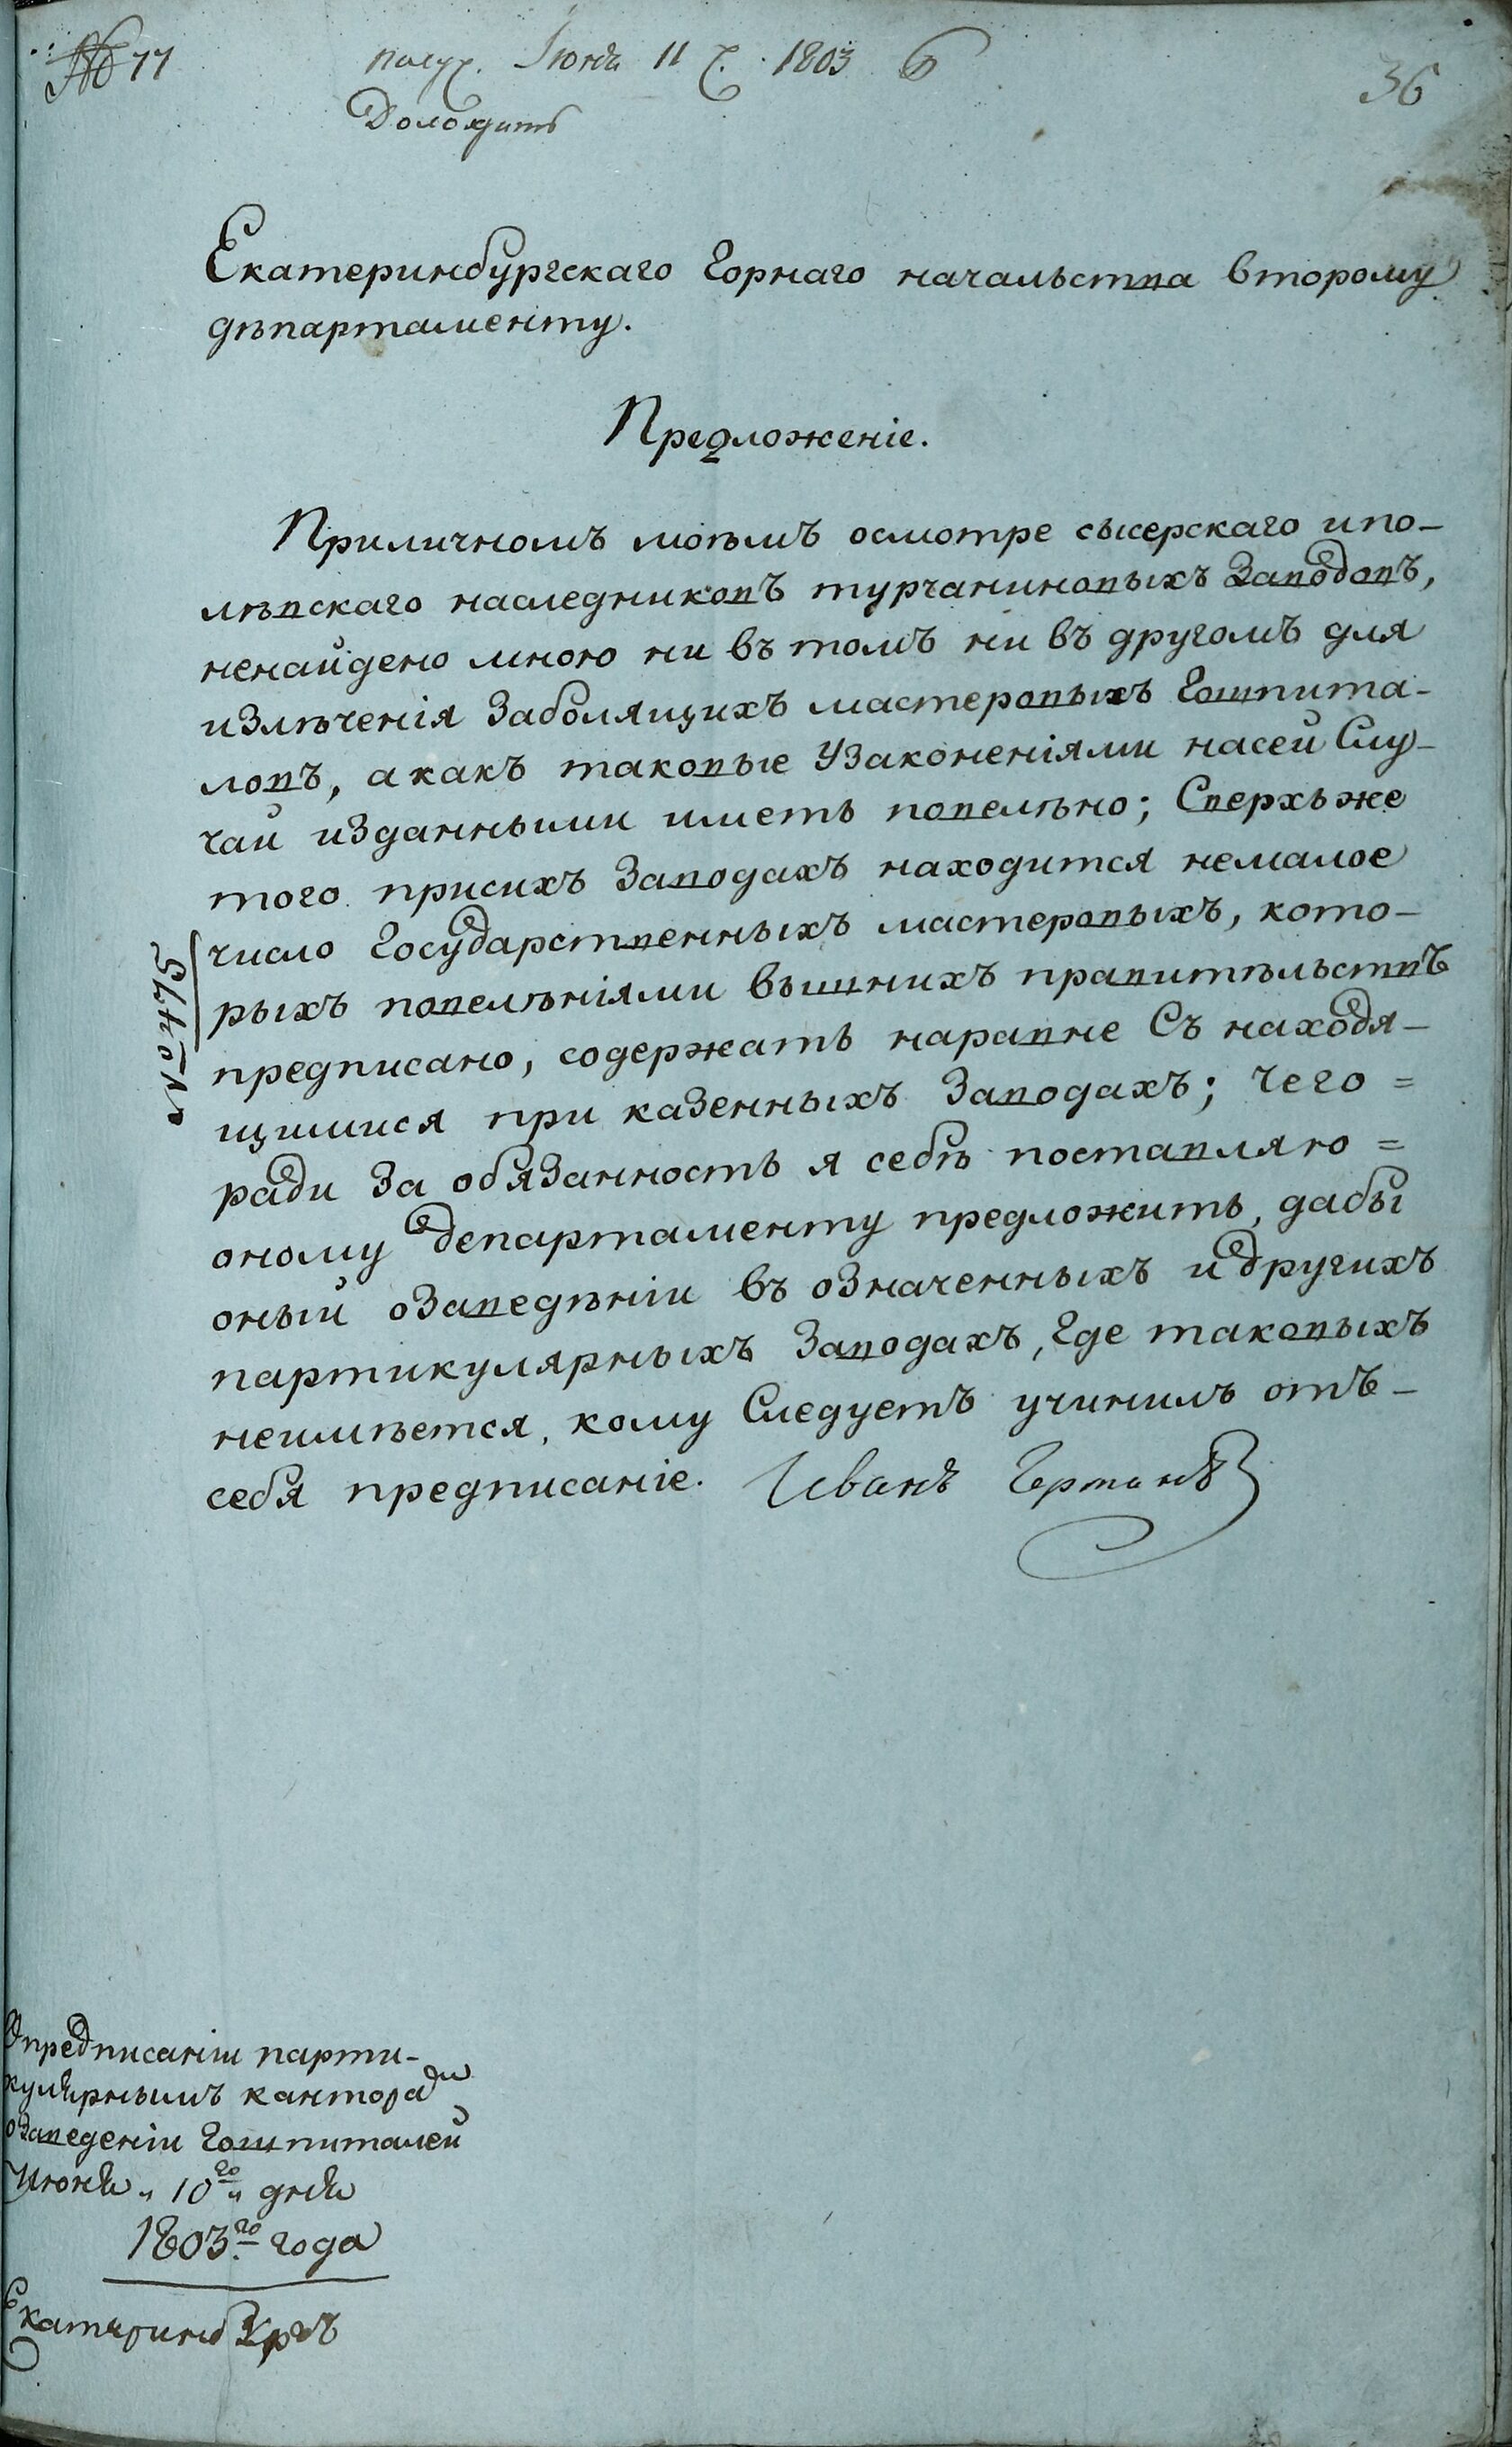 № 77
получ. Іюня 11 ч. 1803 6
36
Доложить
Екатеринбургскаго Горнаго начальства второму
дѣпартаменту.
Предложеніе.
Приличномъ моѣмъ осмотре сысерскаго ипо-
лѣвскаго наследниковъ турчаниновыхъ Заводовъ,
ненайдено мною ни въ томъ ни въ другомъ для
излѣченія Заболящихъ мастеровыхъ Гошпита-
ловъ, а какъ таковые Узаконеніями насей Слу-
чай изданными иметь повелѣно; Сверхъ же
того присихъ Заводахъ находится немалое
число Государственныхъ мастеровыхъ, кото-
рыхъ повелѣніями вышнихъ правитѣльствъ
предписано, содержать наравне Съ находя-
щимися при казенныхъ Заводахъ; Чего =
ради За обязанность я себѣ поставляю =
оному департаменту предложить, дабы
оный оЗаведѣніи въ означенныхъ идругихъ
партикулярныхъ Заводахъ, Где таковыхъ
неимѣется, кому Следуетъ учинилъ отъ-
себя предписаніе. Иванъ Германъ
Опредписаніи парти-
кулярнымъ кантора
оЗаведеніи Гошпиталей
Июня „ 10го „ дня
1803го года
Екатеринбургъ